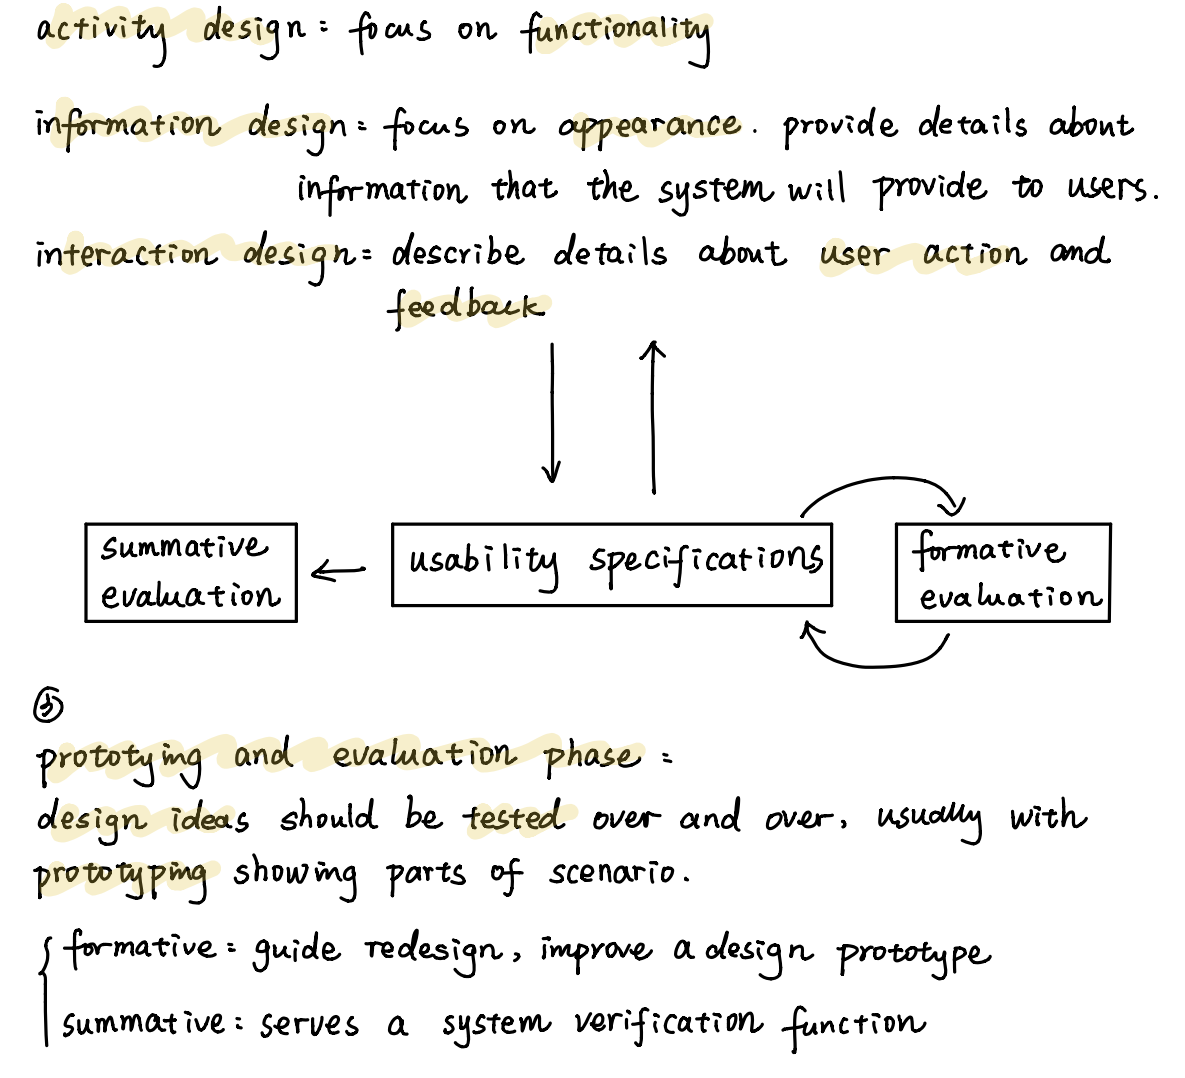 activity design: focus on functionality
information design: focus on appearance. provide details about
information that the system will provide to users.
interaction design: describe details about user action and
feedback
summative
evaluation
usability specifications
formative
evaluation
⑤
prototying and evaluation phase:
design ideas should be tested over and over, usually with
prototyping showing parts of scenario.
formative: guide redesign, improve a design prototype
summative: serves a system verification function